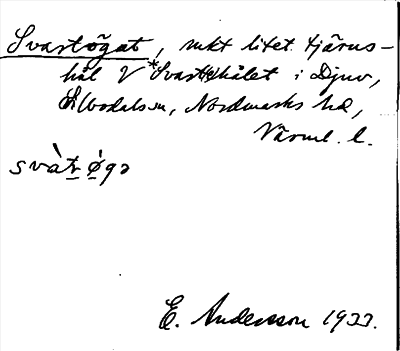 Svartögat, rukt litet tjärus-
hål V *Svarthålet i Djuv,
Älvdals sn, Nordmarks hd,
Värml. l.
svàtr ǿgə
E. Andersson 1933.